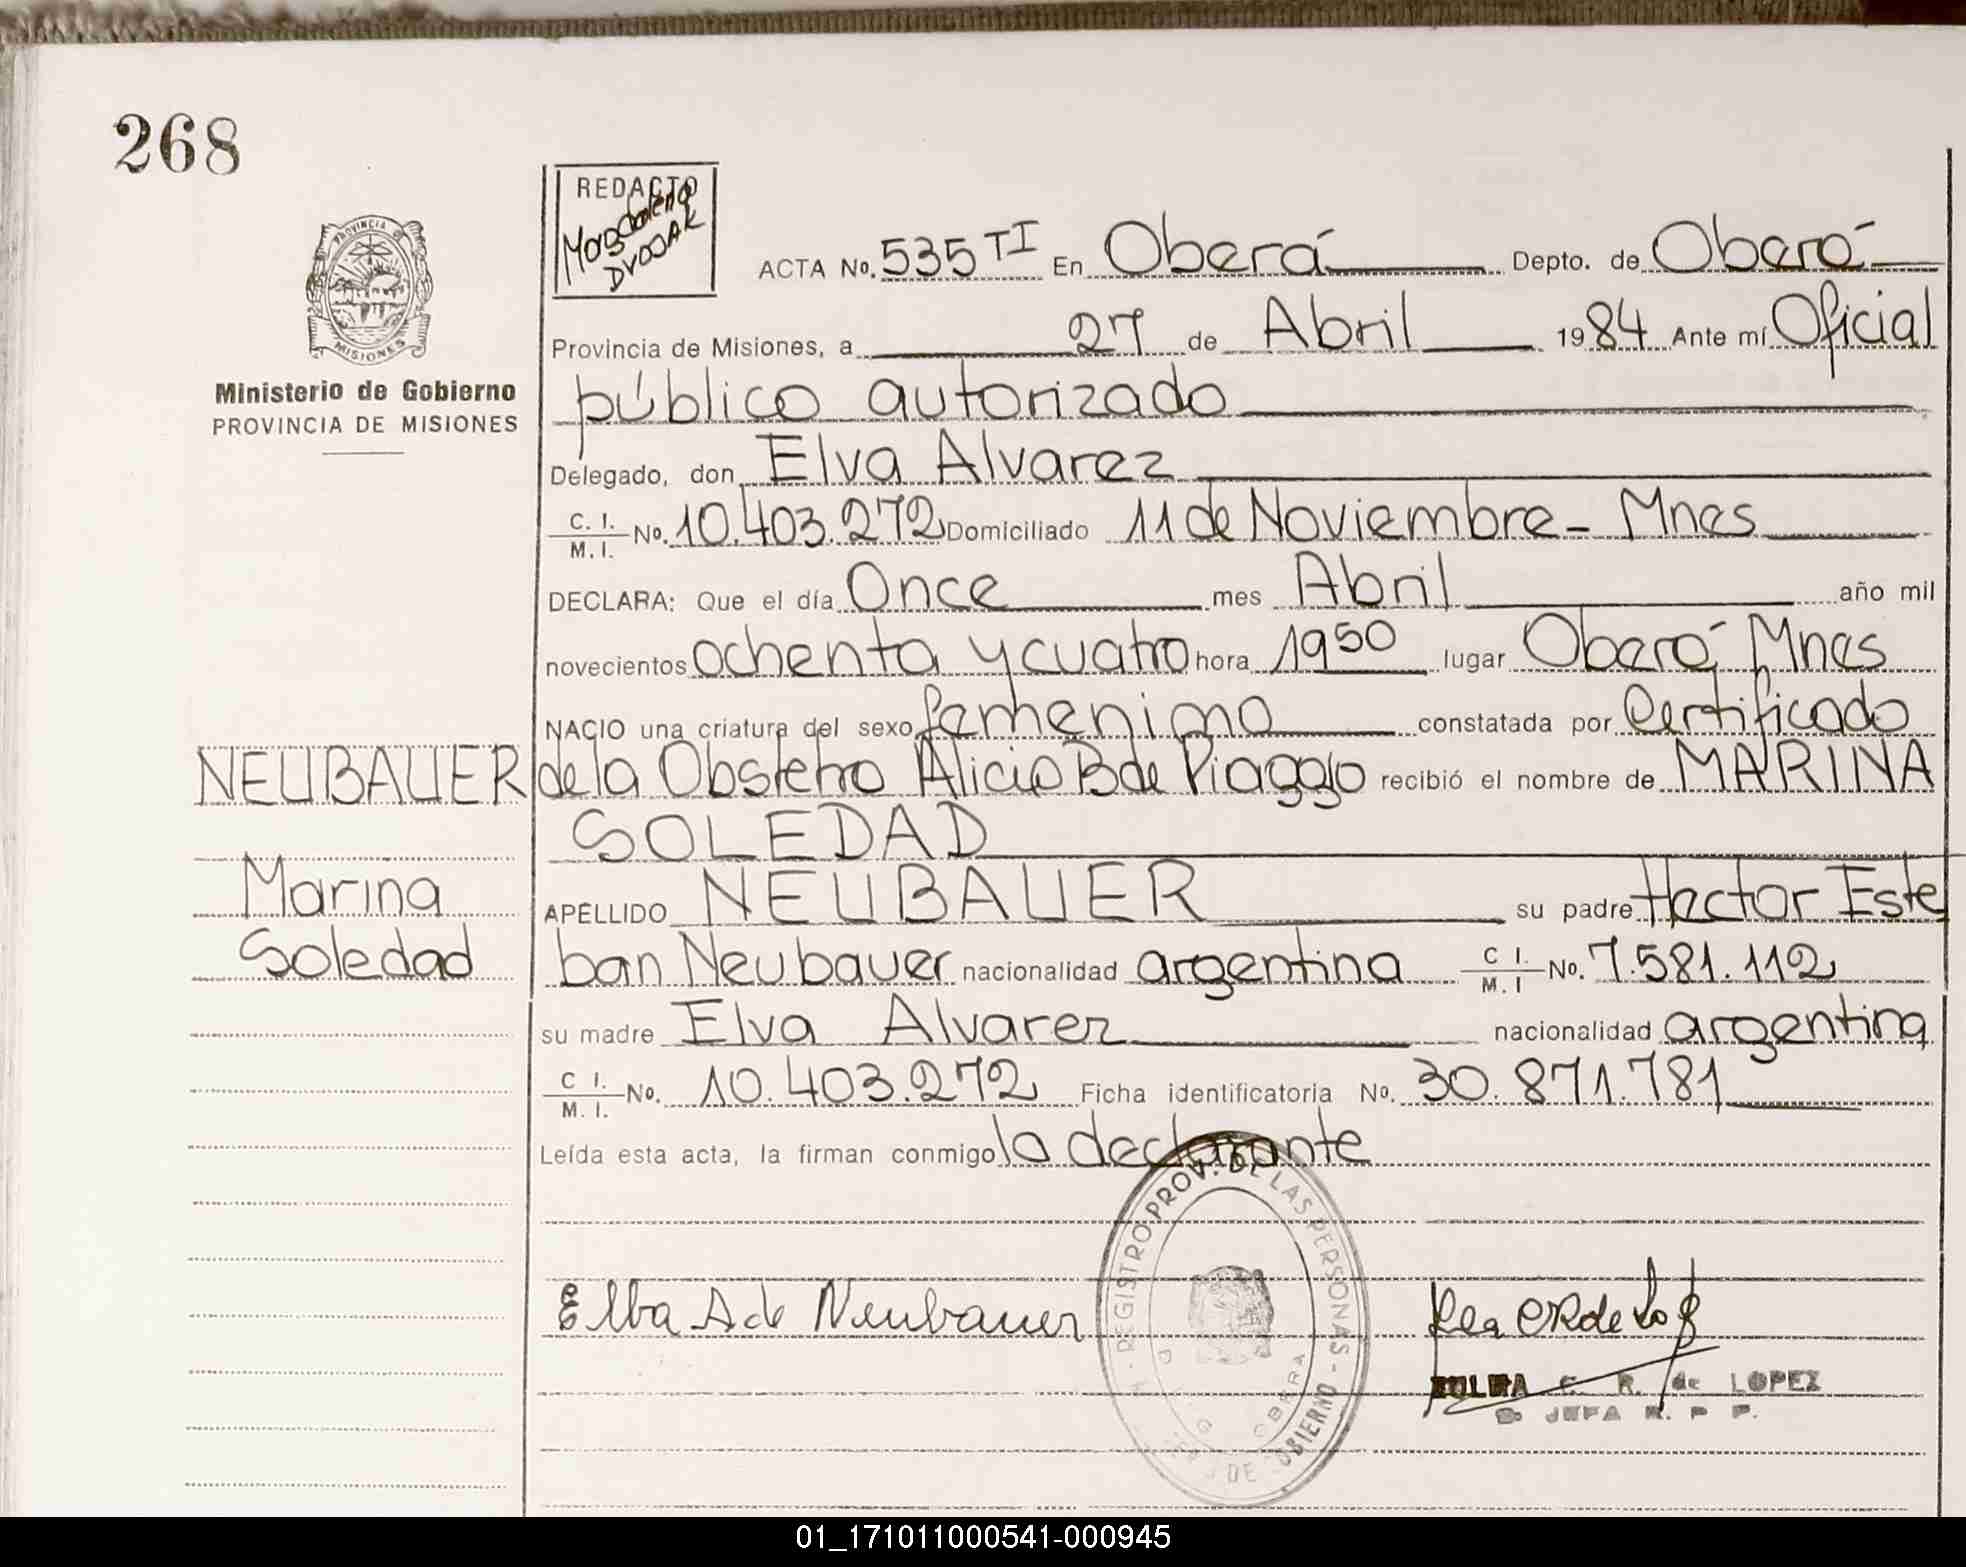 268
REDACTO
Magdalena
DVOJAK
ACTA No. 535 TI En Oberá Depto. de Oberá
PROVINCIA DE
MISIONES
Provincia de Misiones, a 27 de Abril 1984 Ante mí Oficial
Ministerio de Gobierno
PROVINCIA DE MISIONES
público autorizado
Delegado, don Elva Alvarez
C. I. M. I. No. 10.403.272 Domiciliado 11 de Noviembre - Mnes
DECLARA: Que el día Once mes Abril año mil
novecientos ochenta y cuatro hora 1950 lugar Oberá Mnes
NACIO una criatura del sexo femenino constatada por Certificado
NEUBAUER de la Obstetra Alicia B de Piaggio recibió el nombre de MARINA
SOLEDAD
Marina APELLIDO NEUBAUER su padre Hector Este
Soledad ban Neubauer nacionalidad argentina C I. M. I No. 7.581.112
su madre Elva Alvarez nacionalidad argentina
C I. M. I. No. 10.403.272 Ficha identificatoria No. 30.871.781
Leída esta acta, la firman conmigo la declarante
REGISTRO PROV. DE LAS PERSONAS - DE GOBIERNO
Elba A de Neubauer
ZULMA C. R. de LOPEZ
JEFA R. P. P.
01_171011000541-000945